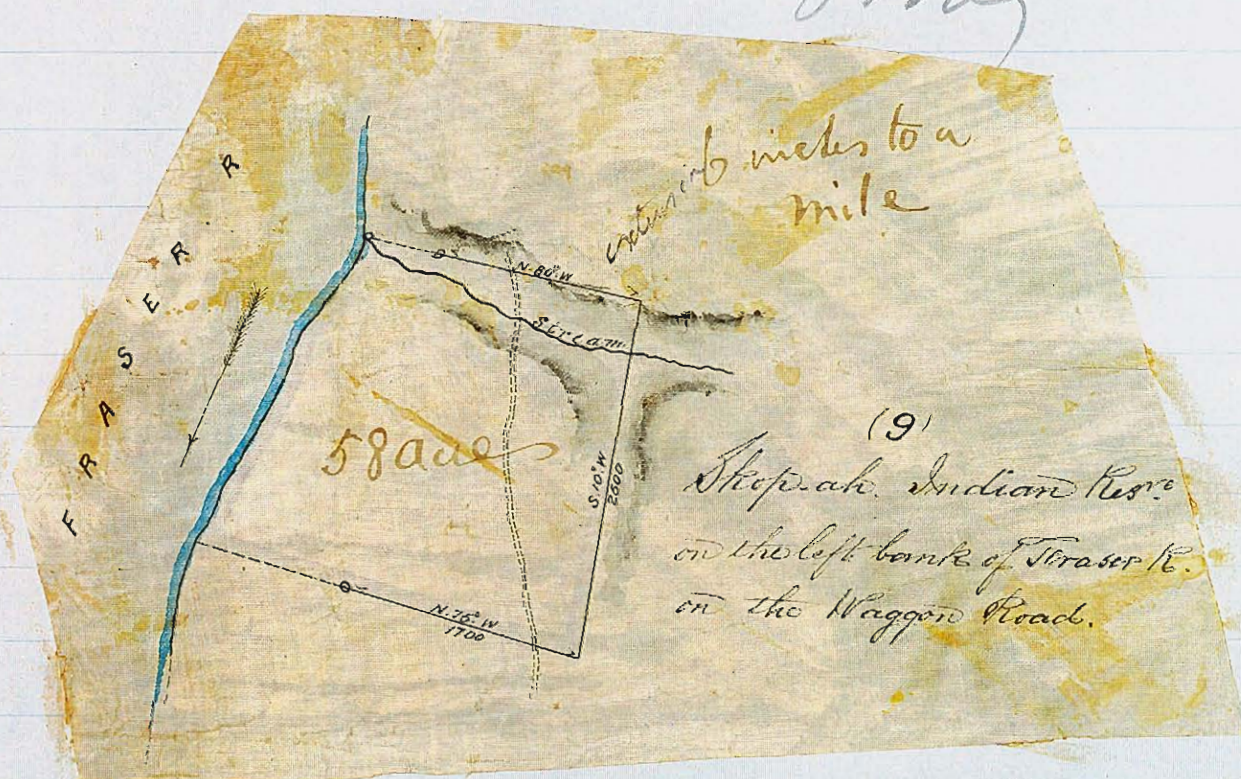 6 inches to a
mile
FRASER R
N. 80° W
Stream
58 acres
S. 10° W
2600
N. 75° W
1700
(9)
Skop-ah. Indian Resve
on the left bank of Fraser R.
on the Waggon Road.